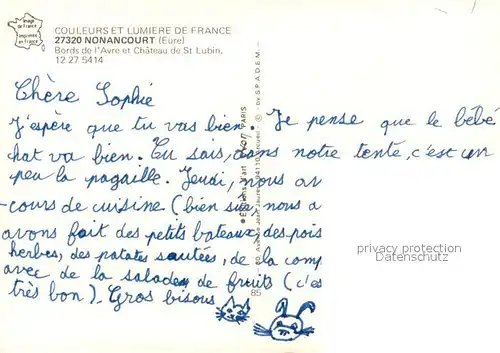 Image
de France
Imprimée
en France
COULEURS ET LUMIERE DE FRANCE
27320 NONANCOURT (Eure)
Bords de l'Avre et Château de St Lubin,
12.27 5414
Chère Sophie
J'espère que tu vas bien. Je pense que le bébé
chat va bien. Tu sais, dans notre tente, c'est un
peu la pagaille. Jeudi, nous av
-cours de cuisine (bien sûr, nous a
avons fait des petits bateaux, des pois
herbes, des patates sautées, de la comp
avec de la salade de fruits (c'es
très bon). Gros bisous
Editions d'art PARIS
80 Avenue Jean Jaurès 94110 Arcueil
© - ex S.P.A.D.E.M. -
85
privacy protection
Datenschutz